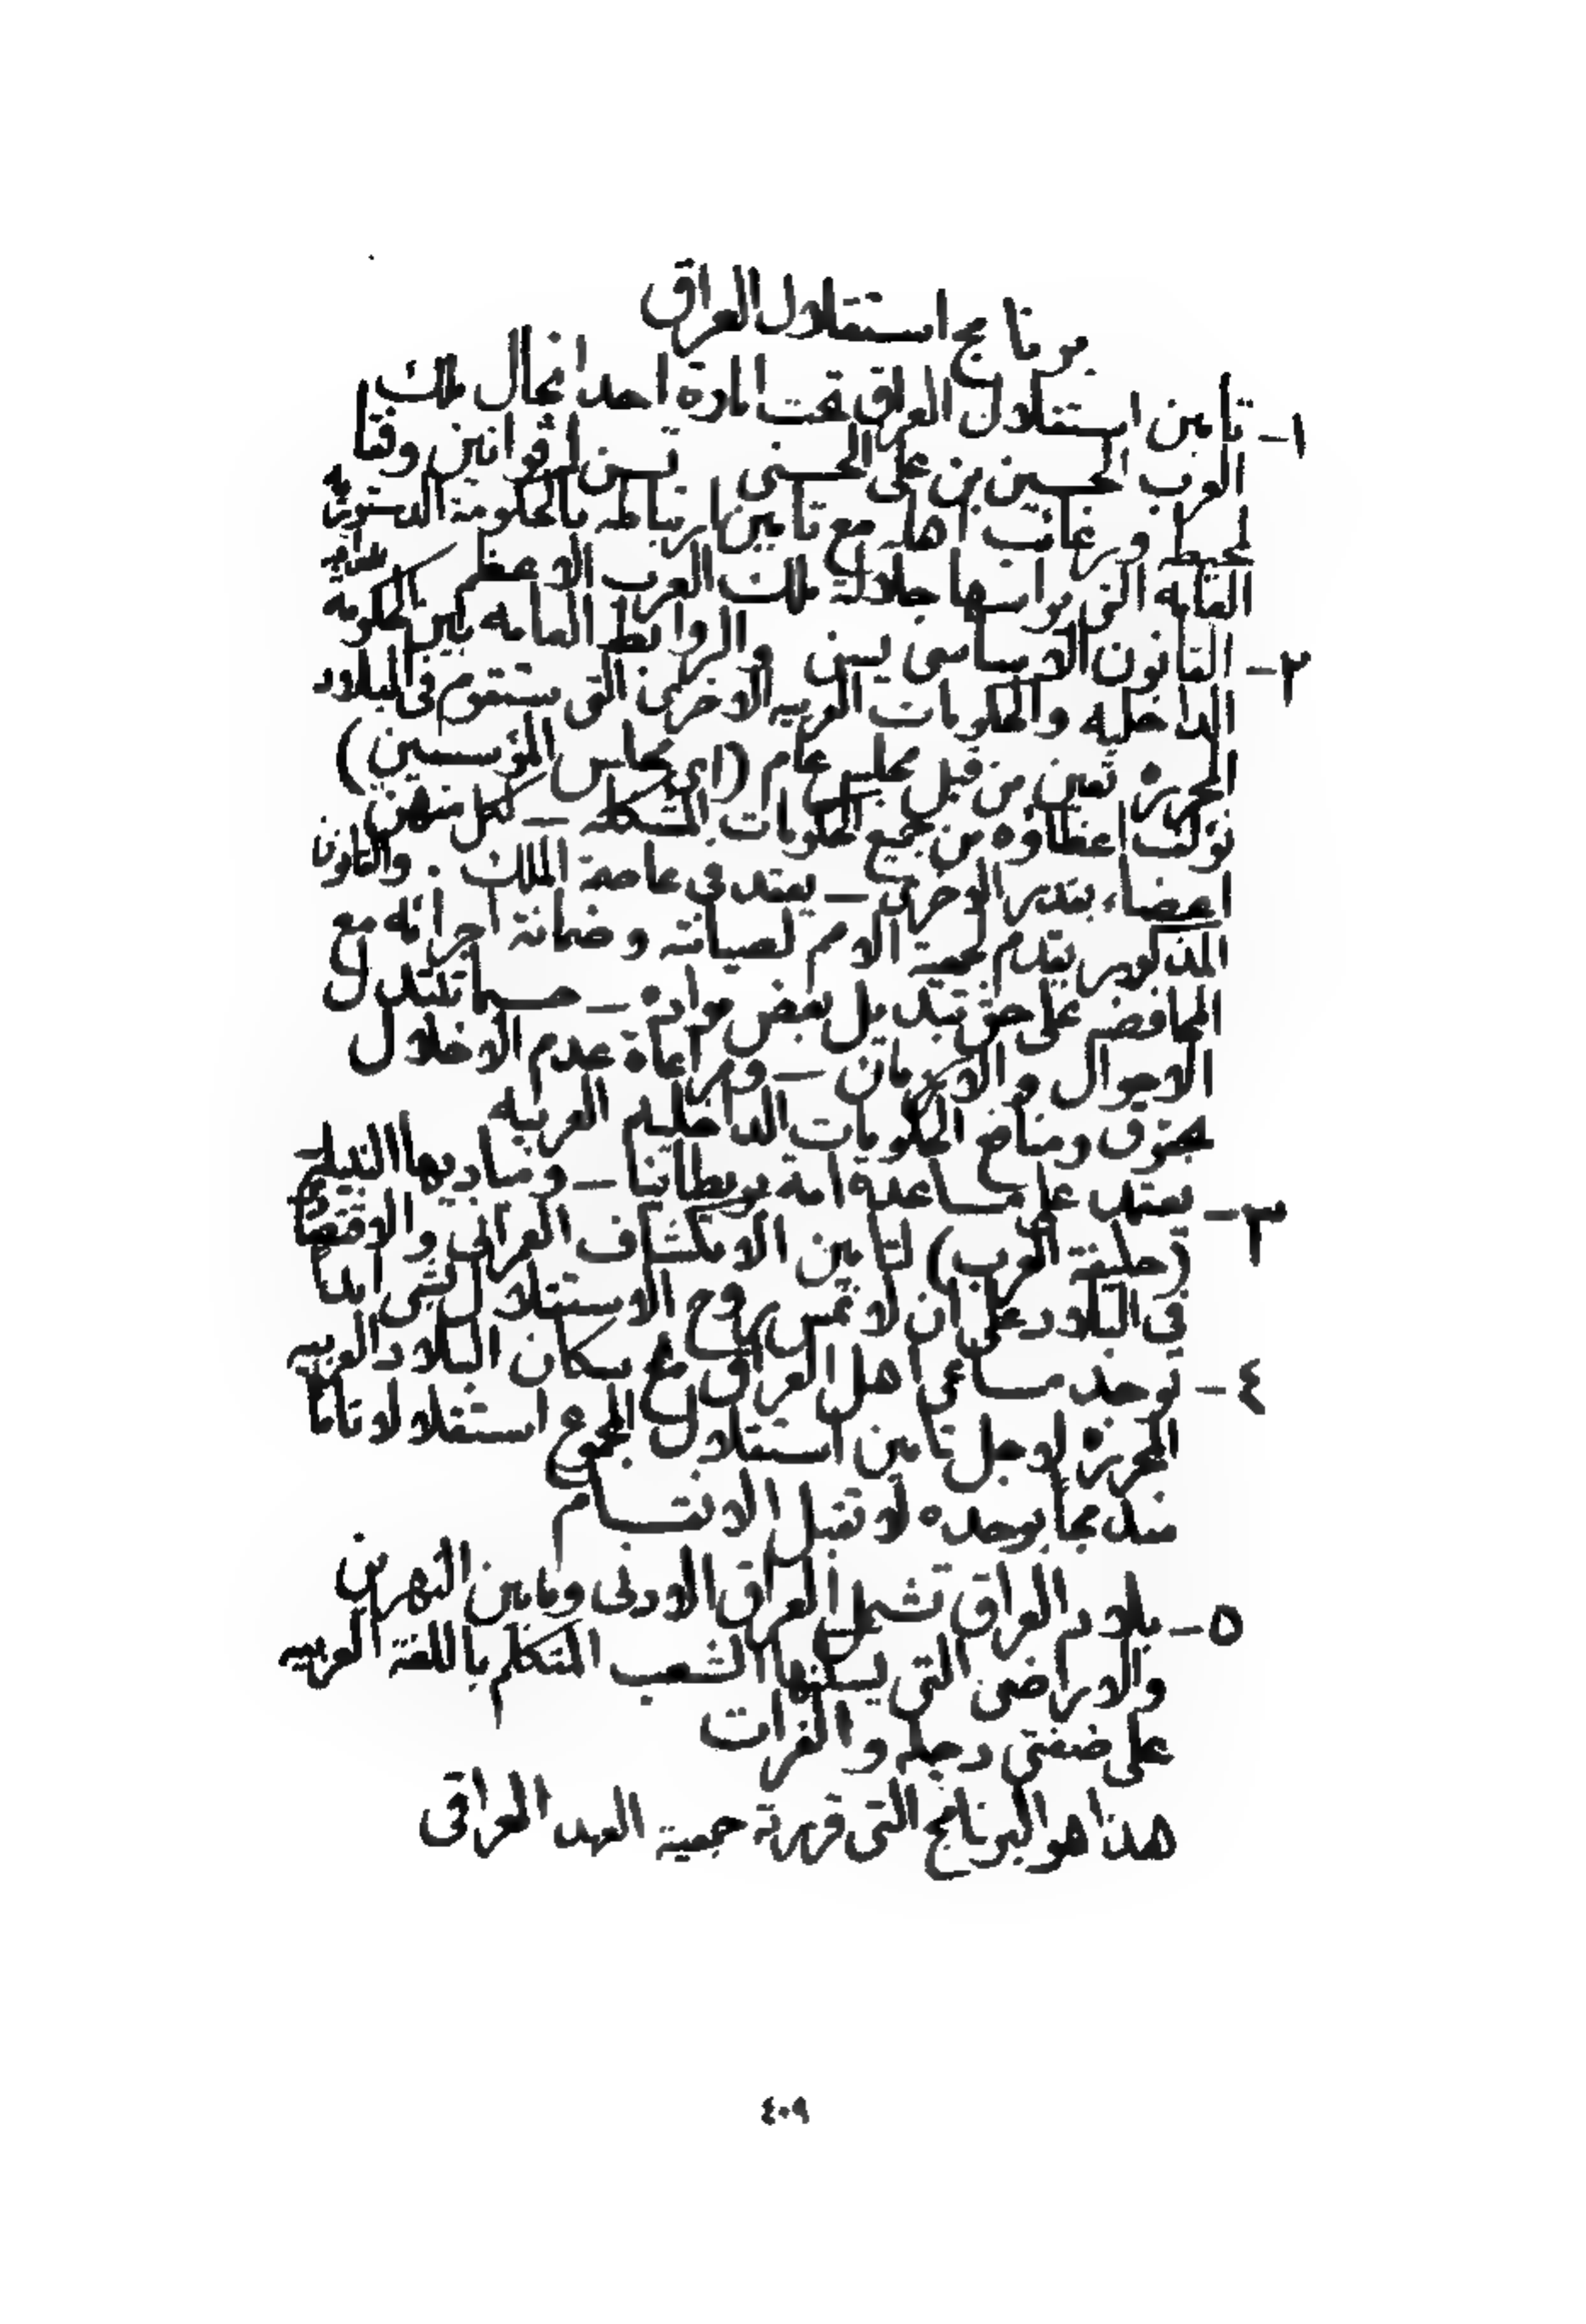 برنامج استقلال العراق
١- تأمين استقلال العراق تحت امارة احد انجال ملك
العرب الحسين بن علي الحسني تسن له قوانين وفقا
لمحيطه ورغائب اهله مع تأمين ارتباطه بالحكومة الدستورية
العامه التي يرأسها جلالة ملك العرب الاعظم
٢- القانون الاساسي يسن والروابط العامه بين الحكومه
الداخليه والحكومات العربيه الاخرى التي ستقوم في البلاد
المحررة تعين من قبل مجلس عام (اي مجلس المؤسسين)
تؤلف اعضاوه من جميع الحكومات المتشكله — لكل منهن
اعضاء بقدر الاخرى — يعقد في عاصمة الملك . والقانون
المذكور يقدم لعصبة الامم لصيانته وضمانة اجرائه مع
المحافضه على حق تبديل بعض موادة — حسبما تتبدل
الاحوال والازمان — ومراعاة عدم الاخلال
بحقوق ومنافع الحكومات الداخليه العربيه
٣- يعتمد على مساعدة امة بريطانيا — ومبادئها النبيلة
(حليفة العرب) لتأمين الانكشاف العمراني والاقتصادي
في البلاد على ان لا تمس روح الاستقلال بشي ابداً
٤- توحد مساعي اهل العراق مع سكان البلاد العربيه
المحررة لاجل تأمين استقلال المجموع استقلالا تاماً
مندمجا بوحده لا تقبل الانقسام
٥- بلادم العراق تشمل العراق الادنى ومابين النهرين
والاراضي التي يسكنها الشعب المتكلم باللغة العربيه
على ضفتي دجله والفرات
هذا هو البرنامج التي قررتة جمعية العهد العراقي
٤٠٩